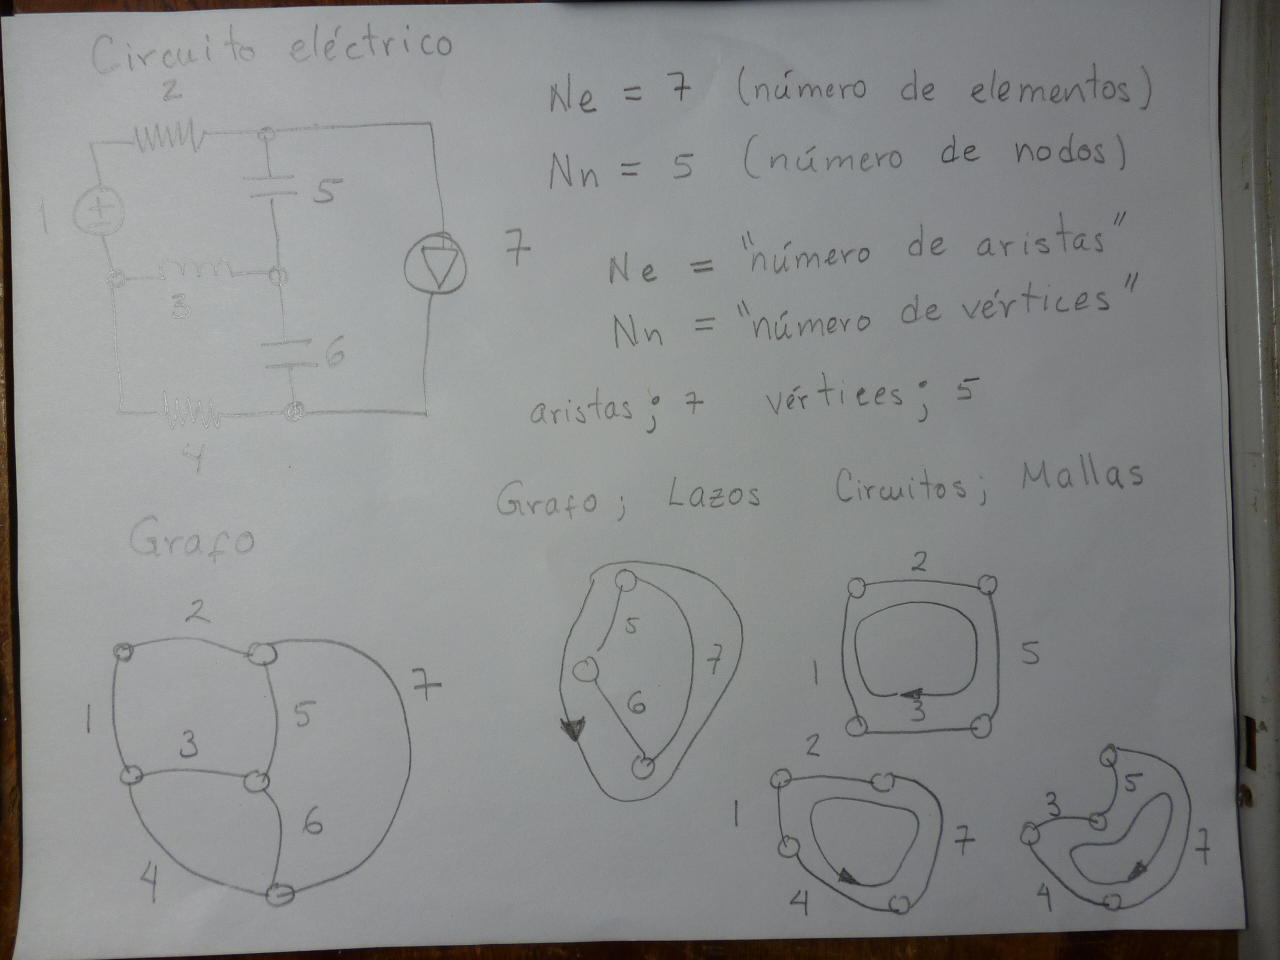 Circuito eléctrico
2
1
5
7
3
6
4
Ne = 7 (número de elementos)
Nn = 5 (número de nodos)
Ne = "número de aristas"
Nn = "número de vértices"
aristas; 7 vértices; 5
Grafo; Lazos Circuitos; Mallas
Grafo
2
1
3
5
7
6
4
5
6
7
2
1
5
3
2
1
7
4
3
5
7
4